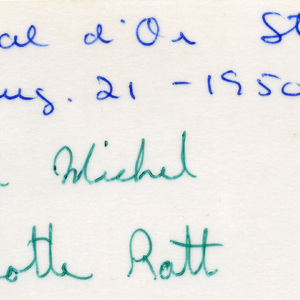 al d'Or St
ug. 21 - 1950
Michel
otte Ratt